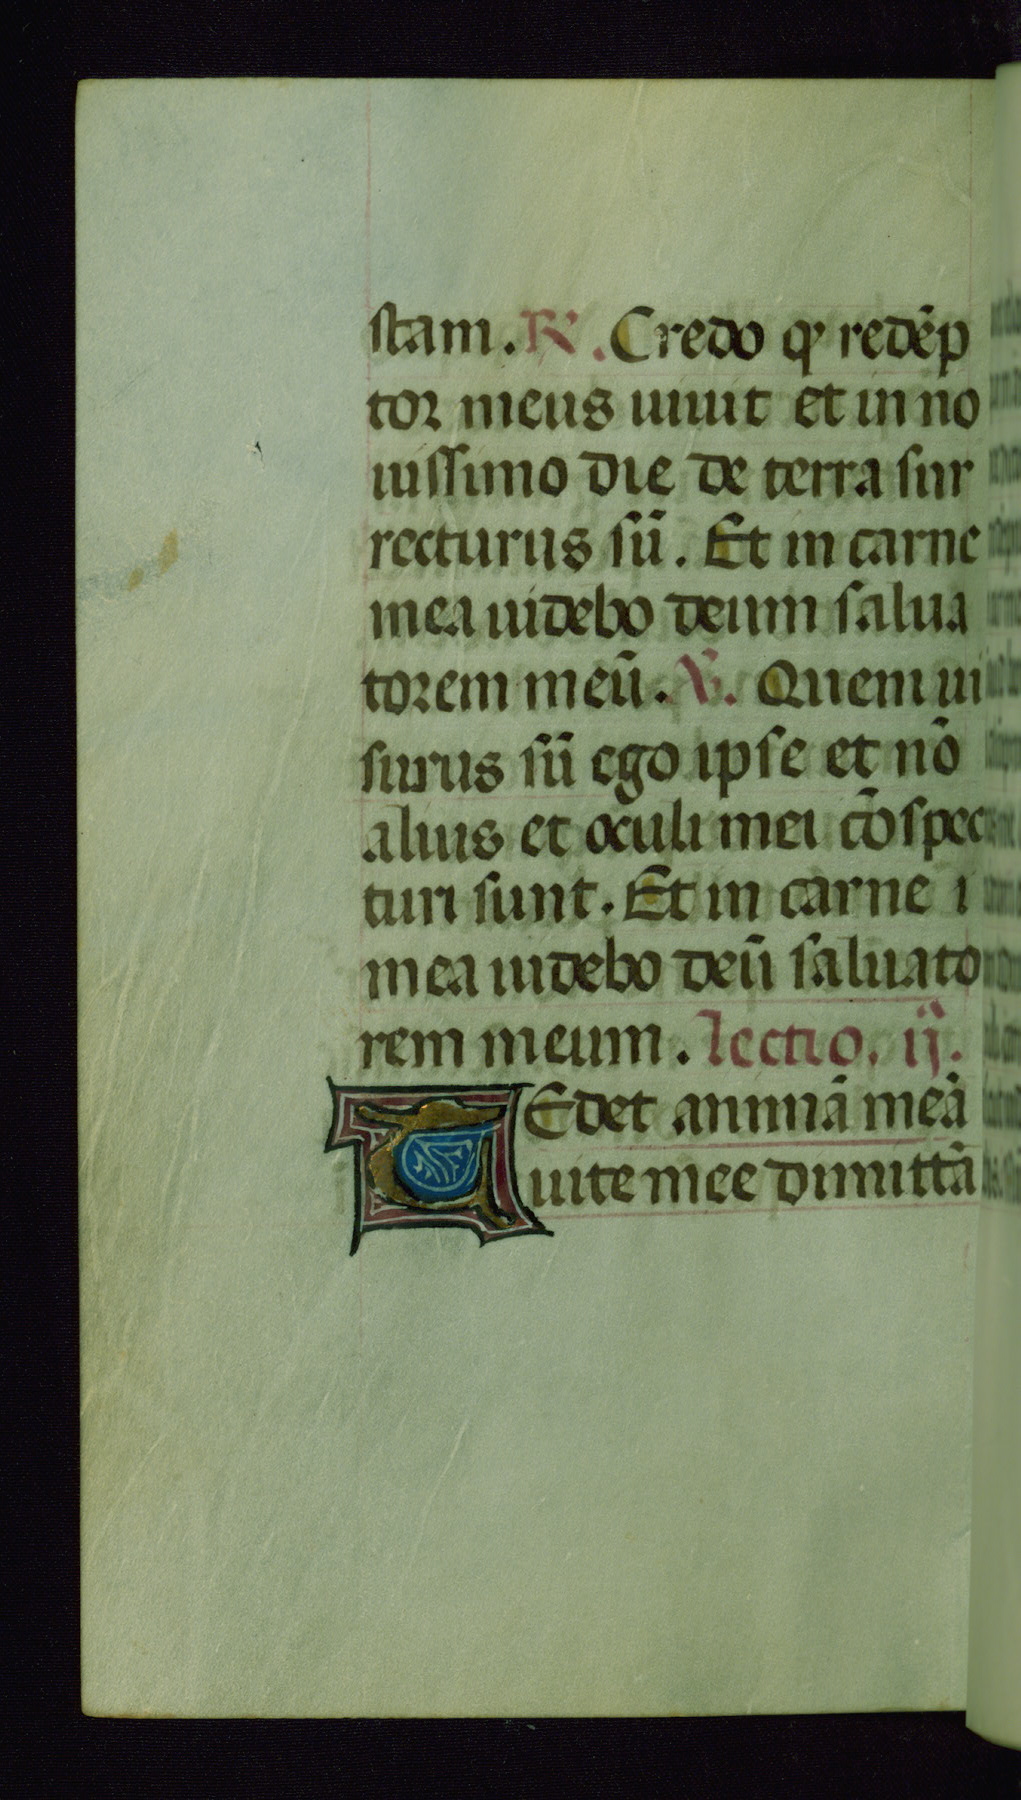 stam. R̷. Credo qͥ redēp
tor meus uiuit et in no
uissimo die de terra sur
recturus sū. Et in carne
mea uidebo deum salua
torem meū. V̷. Quem ui
surus sū ego ipse et nō
alius et oculi mei cōspec
turi sunt. Et in carne i
mea uidebo deū saluato
rem meum. lectio. ij.
TEdet animā meā
uite mee dimittā